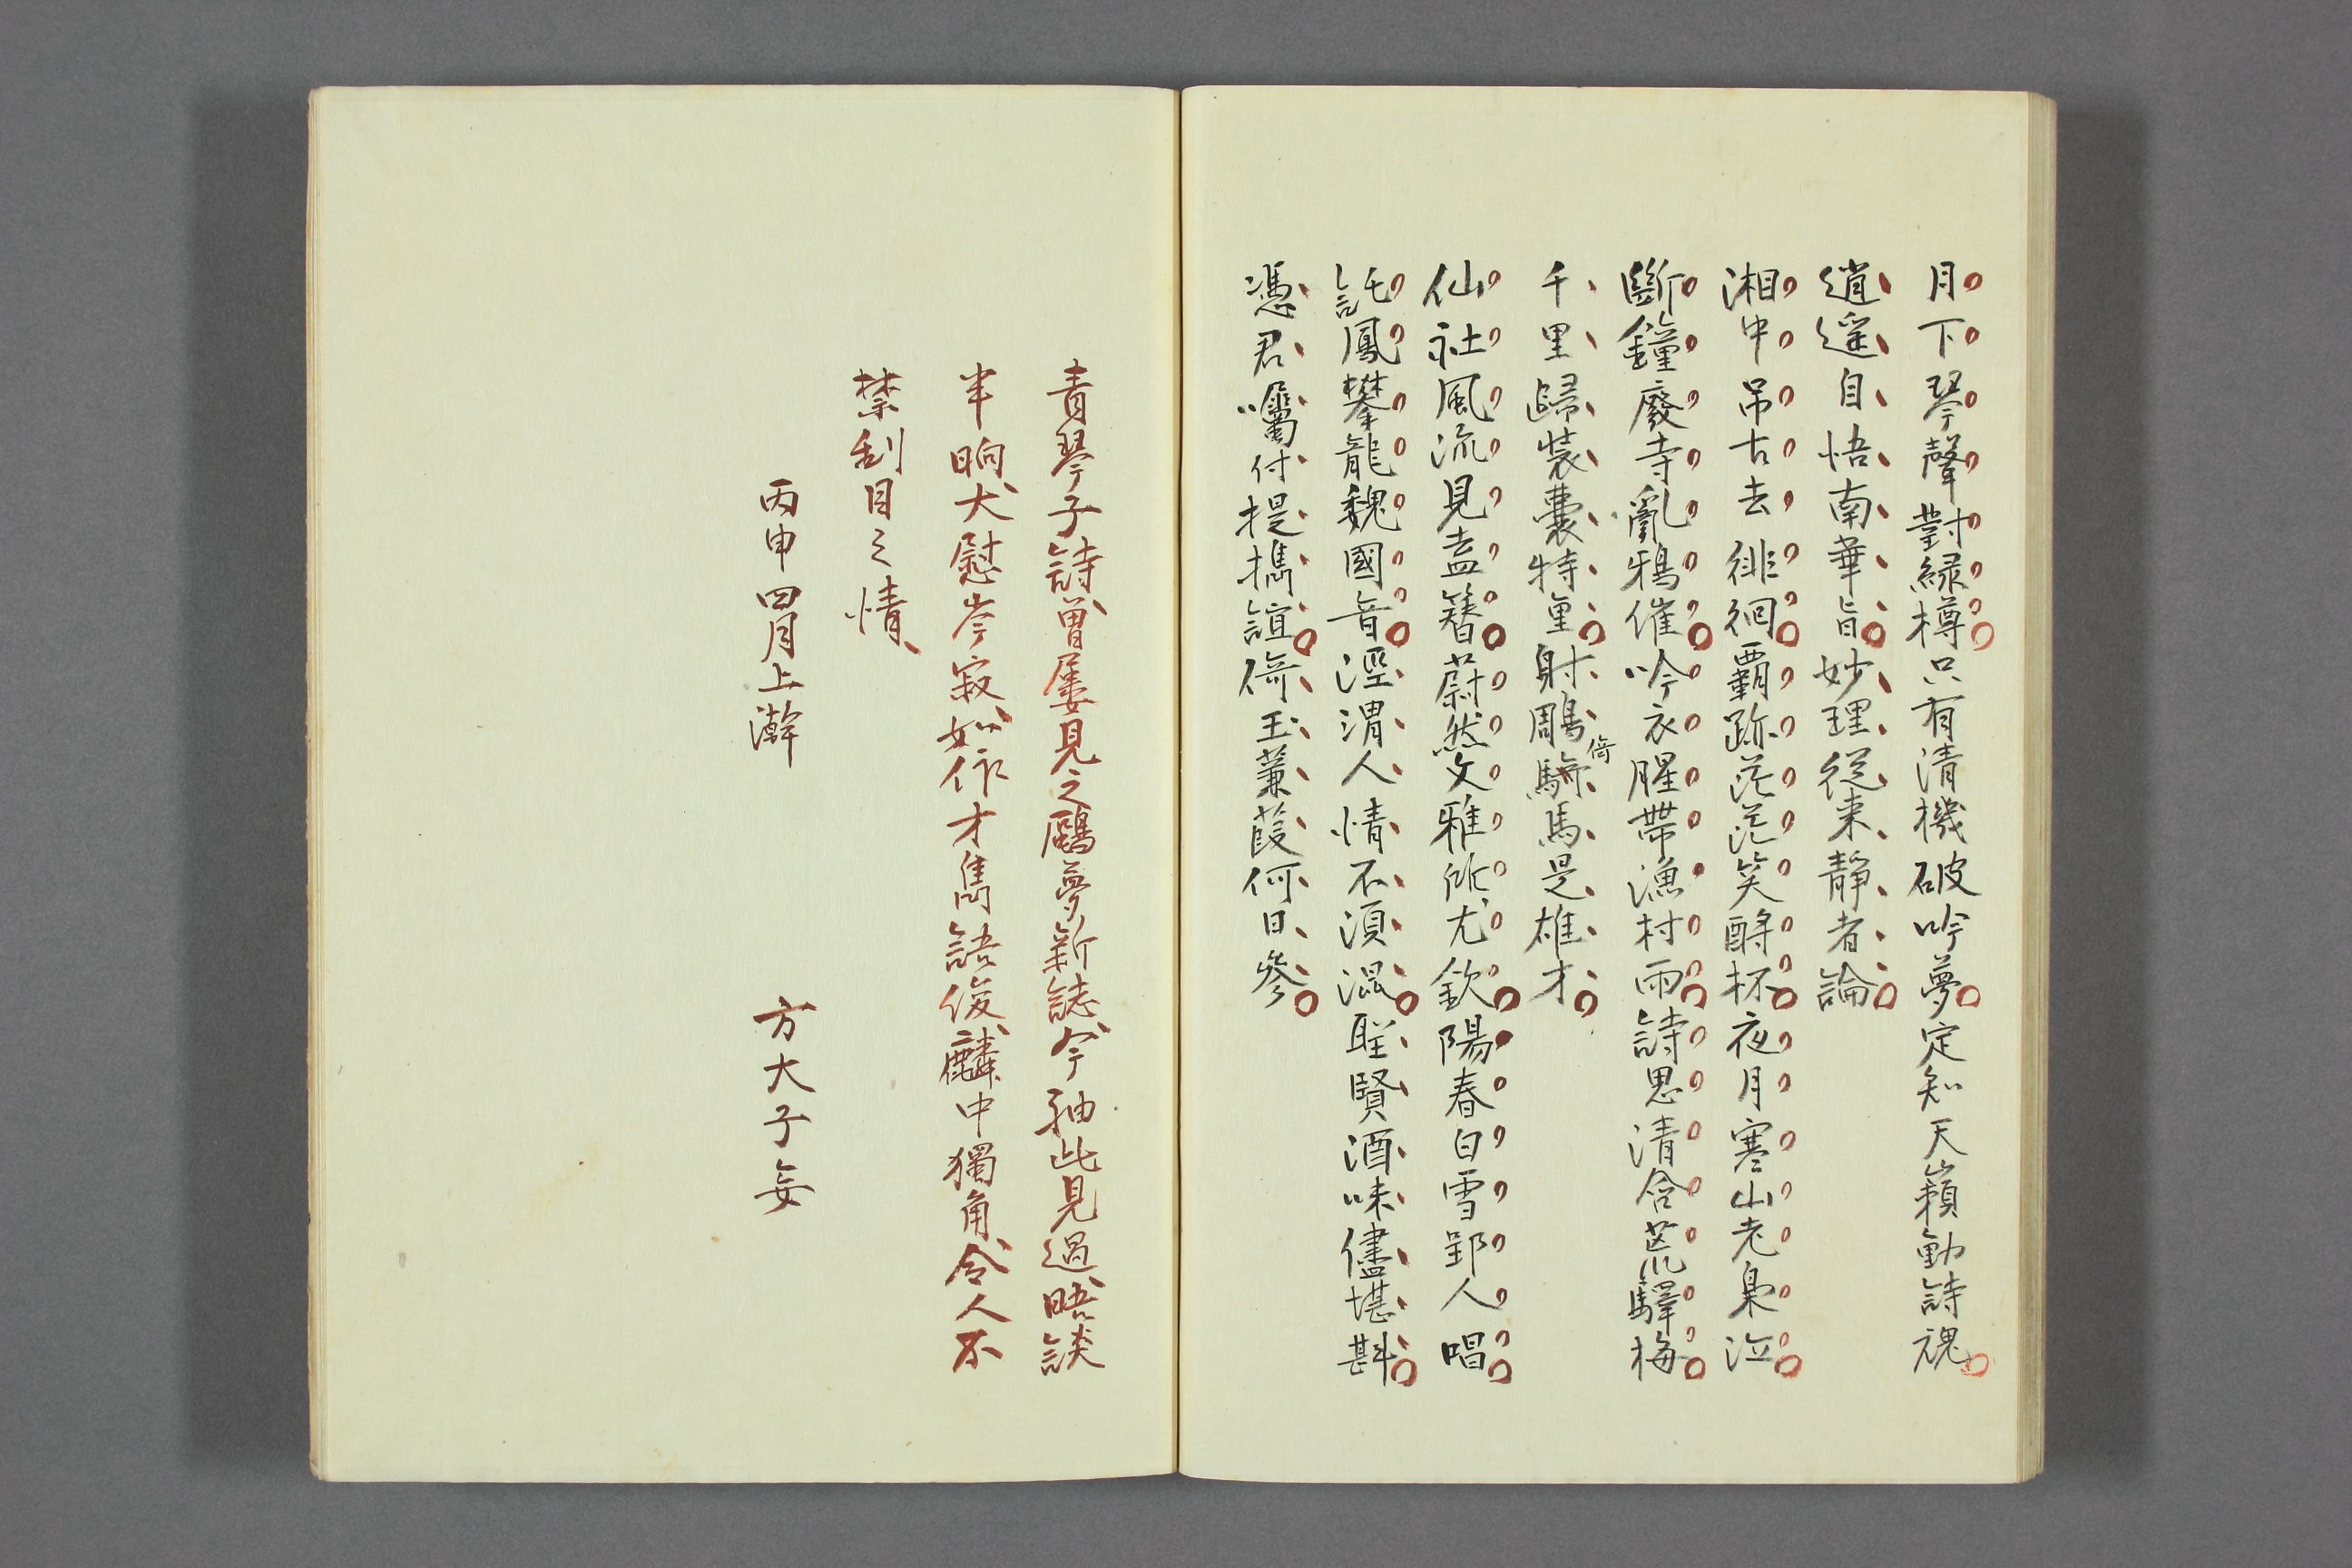 月下琴聲對綠樽只有清機破吟夢定知天籟動詩魂
逍遥自悟南華旨妙理從来靜者論
湘中吊古去徘徊覇跡茫茫笑酹杯夜月寒山老梟泣
斷鐘廢寺亂鴉催吟衣腥帶漁村雨詩思清含荒驛梅
千里歸裝囊特重射鵰騎馬是雄才
倚
仙社風流見盍簪蔚然文雅所尤欽陽春白雪郢人唱
託鳳攀龍魏國音涇渭人情不須混聖賢酒味儘堪斟
憑君囑付提携誼倚玉蒹葭何日參
青琴子詩曽屡見之鷗夢新誌今抽此見過晤談
半晌大慰岑寂如作才雋語俊麟中獨角令人不
禁刮目之情
丙申四月上澣
方大子妄